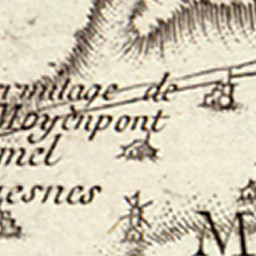 ermitage de
Moyenpont
mel
esnes
M